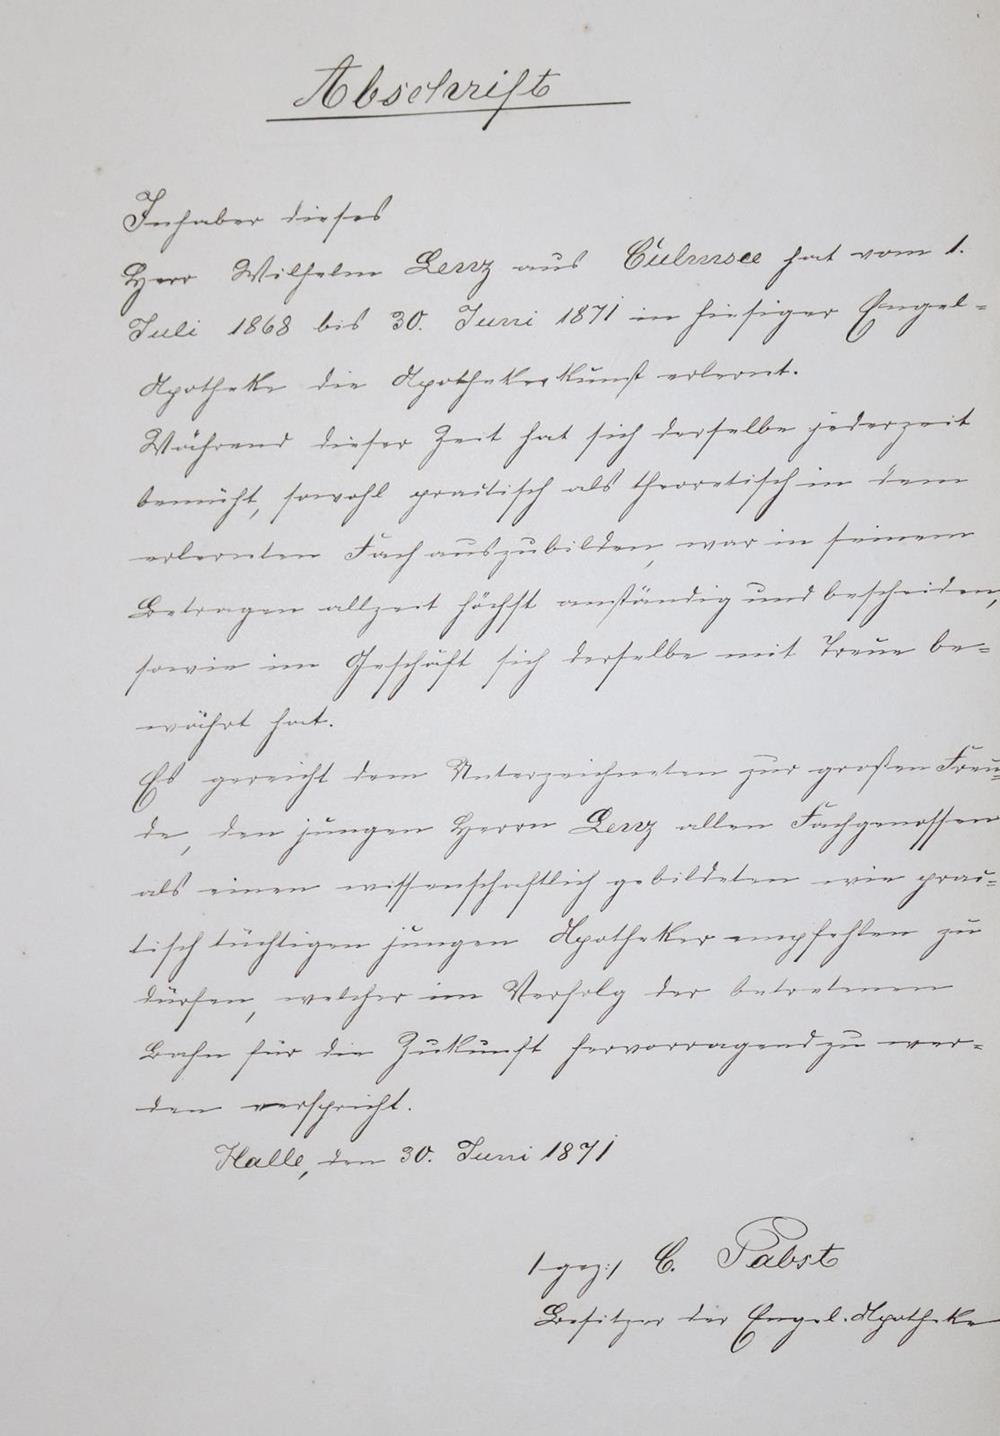 Abschrift
Inhaber dieses
Herr Wilhelm Lenz aus Culmsee hat vom 1.
Juli 1868 bis 30. Juni 1871 in hiesiger Engel-
Apotheke die Apothekerkunst erlernt.
Während dieser Zeit hat sich derselbe jederzeit
bemüht, sowohl practisch als theoretisch in dem
erlernten Fach auszubilden, war in seinem
Betragen allzeit höchst anständig und bescheiden,
sowie im Geschäft sich derselbe mit Treue be-
währt hat.
Es gereicht dem Unterzeichneten zur großen Freu-
de, den jungen Herrn Lenz allen Fachgenossen
als einen wissenschaftlich gebildeten wie prac-
tisch tüchtigen jungen Apotheker empfehlen zu
dürfen, welcher im Verfolg der betretenen
Bahn für die Zukunft hervorragend zu wer-
den verspricht.
Halle, den 30. Juni 1871
/gez:/ C. Pabst
Besitzer der Engel-Apotheke